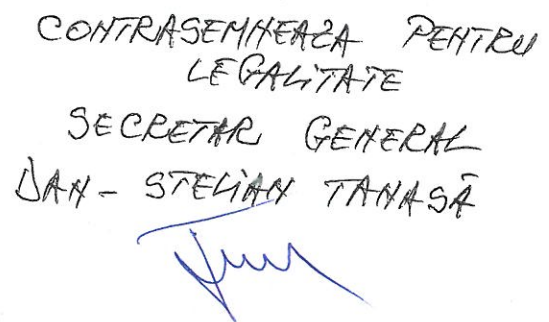 CONTRASEMNEAZA PENTRU
LEGALITATE
SECRETAR GENERAL
DAN - STELIAN TANASĂ